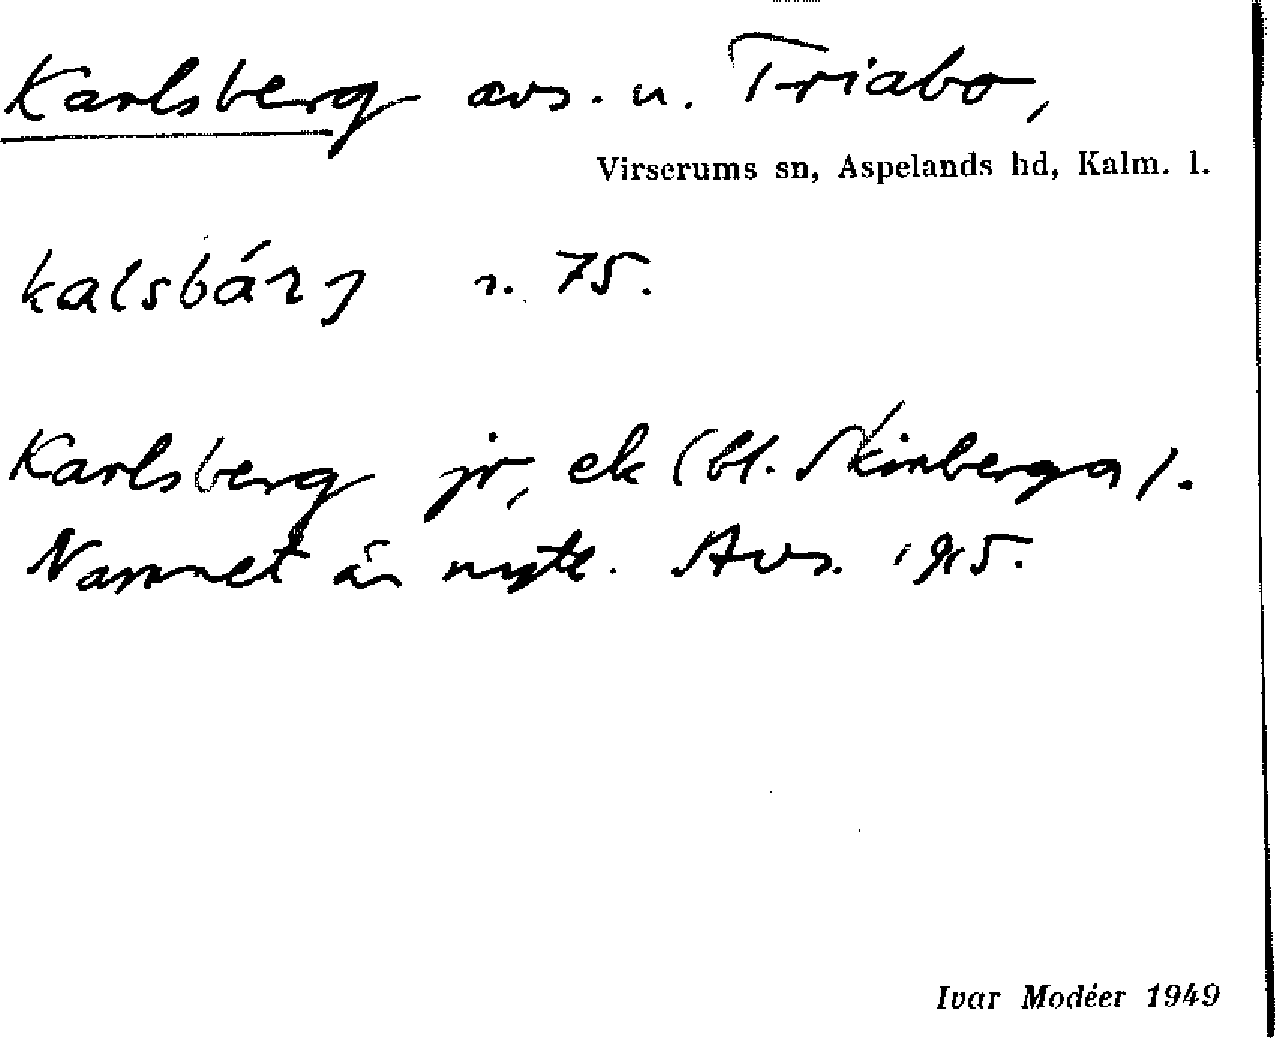 Karlsberg avs. u. Triabo,
Virserums sn, Aspelands hd, Kalm. l.
kalsbárj r. 75.
Karlsberg jr, ek (bl. Skirberga).
Namnet är nytt. Avs. 1915.
Ivar Modéer 1949